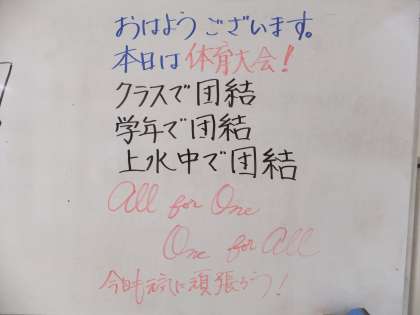 おはようございます。
本日は体育大会!
クラスで団結
学年で団結
上水中で団結
All for One
One for All
今日も元気に頑張ろう!